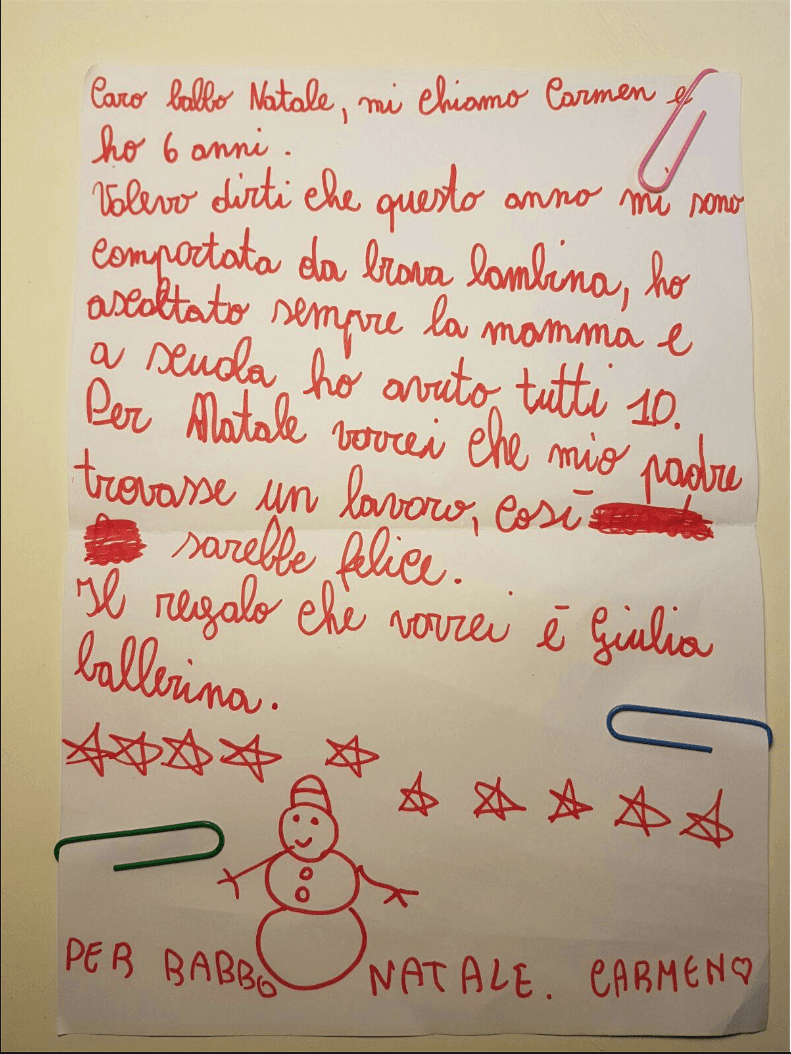 Caro babbo Natale, mi chiamo Carmen e
ho 6 anni.
Volevo dirti che questo anno mi sono
comportata da brava bambina, ho
ascoltato sempre la mamma e
a scuola ho avuto tutti 10.
Per Natale vorrei che mio padre
trovasse un lavoro, così
sarebbe felice.
Il regalo che vorrei è Giulia
ballerina.
PER BABBO NATALE. CARMEN